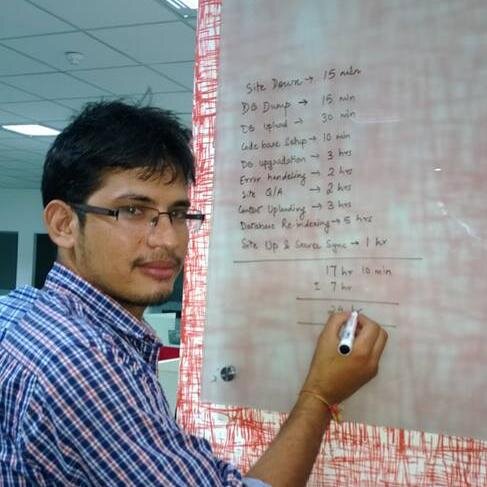 Site Down → 15 min
DB Dump → 15 min
DB Upload → 30 min
Code base Setup → 10 min
DB upgradation → 3 hrs
Error handeling → 2 hrs
Site Q/A → 2 hrs
Content Uploading → 3 hrs
Database Re-indexing → 5 hrs
Site Up & Server Sync → 1 hr
17 hr 10 min
± 7 hr
24